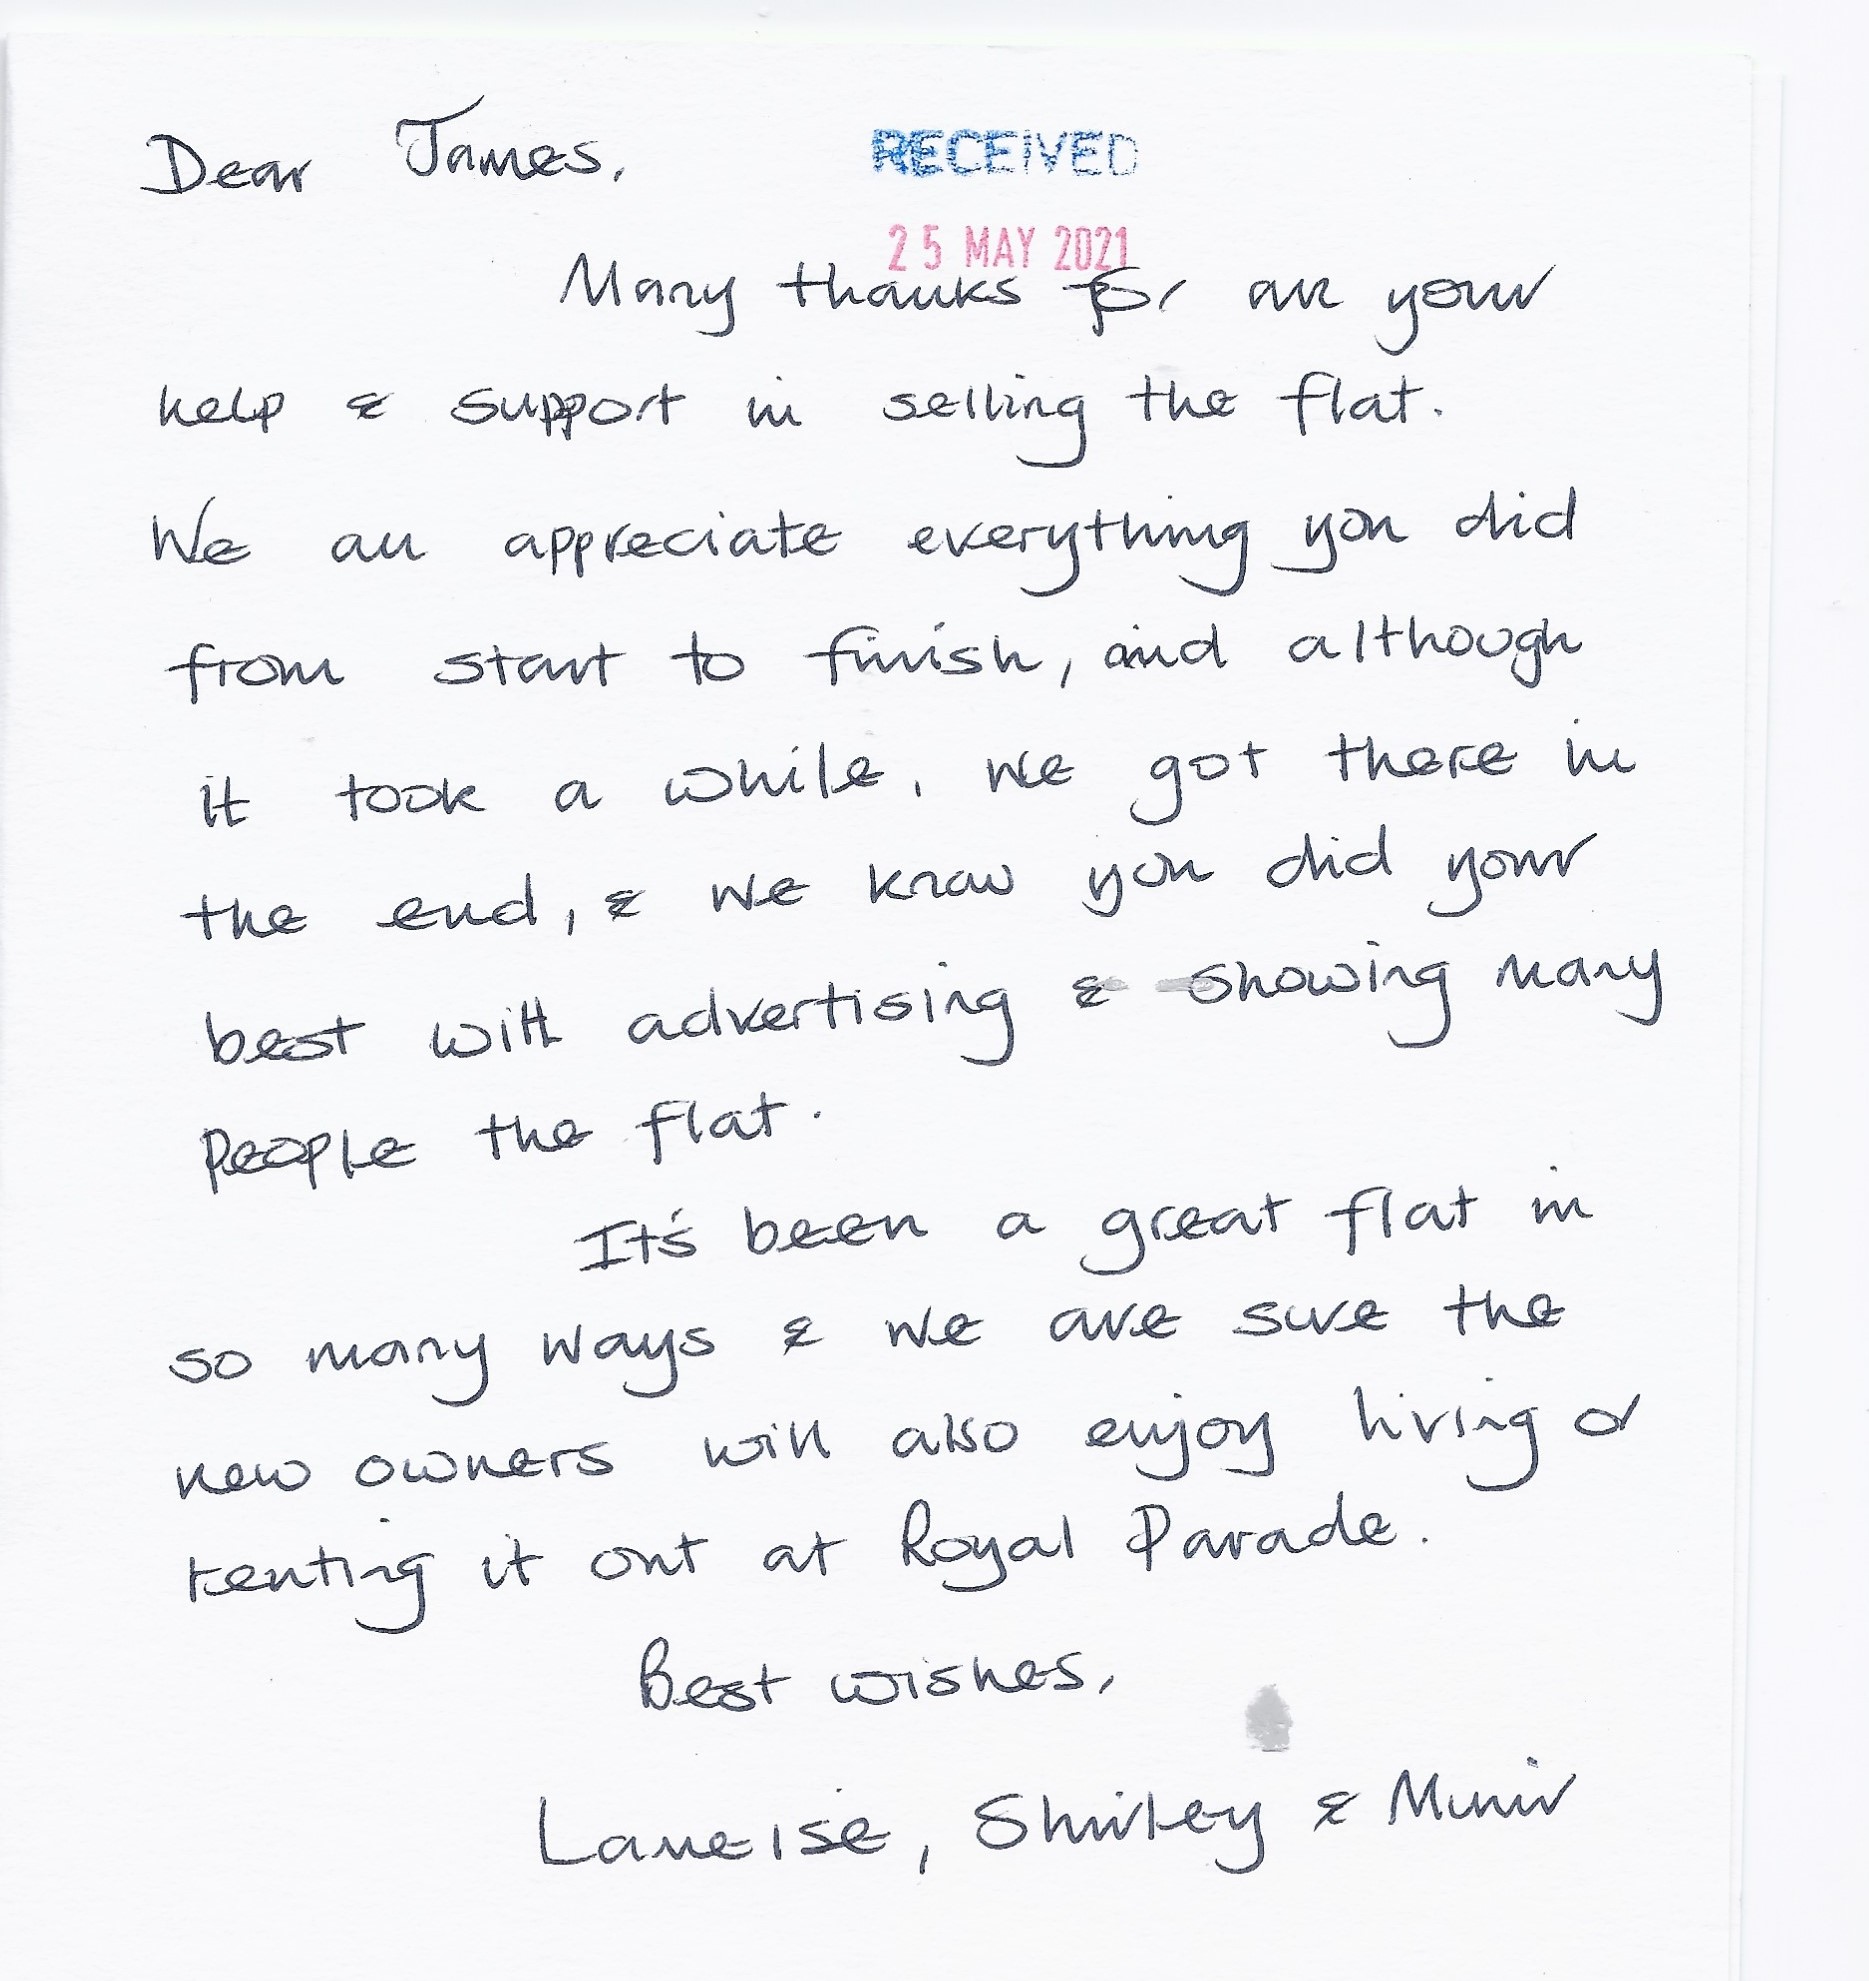 Dear James,
RECEIVED
25 MAY 2021
Many thanks for all your
help & support in selling the flat.
We all appreciate everything you did
from start to finish, and although
it took a while, we got there in
the end, & we know you did your
best with advertising & showing many
people the flat.
It's been a great flat in
so many ways & we are sure the
new owners will also enjoy living or
renting it out at Royal Parade.
Best wishes,
Laneise, Shirley & Munir